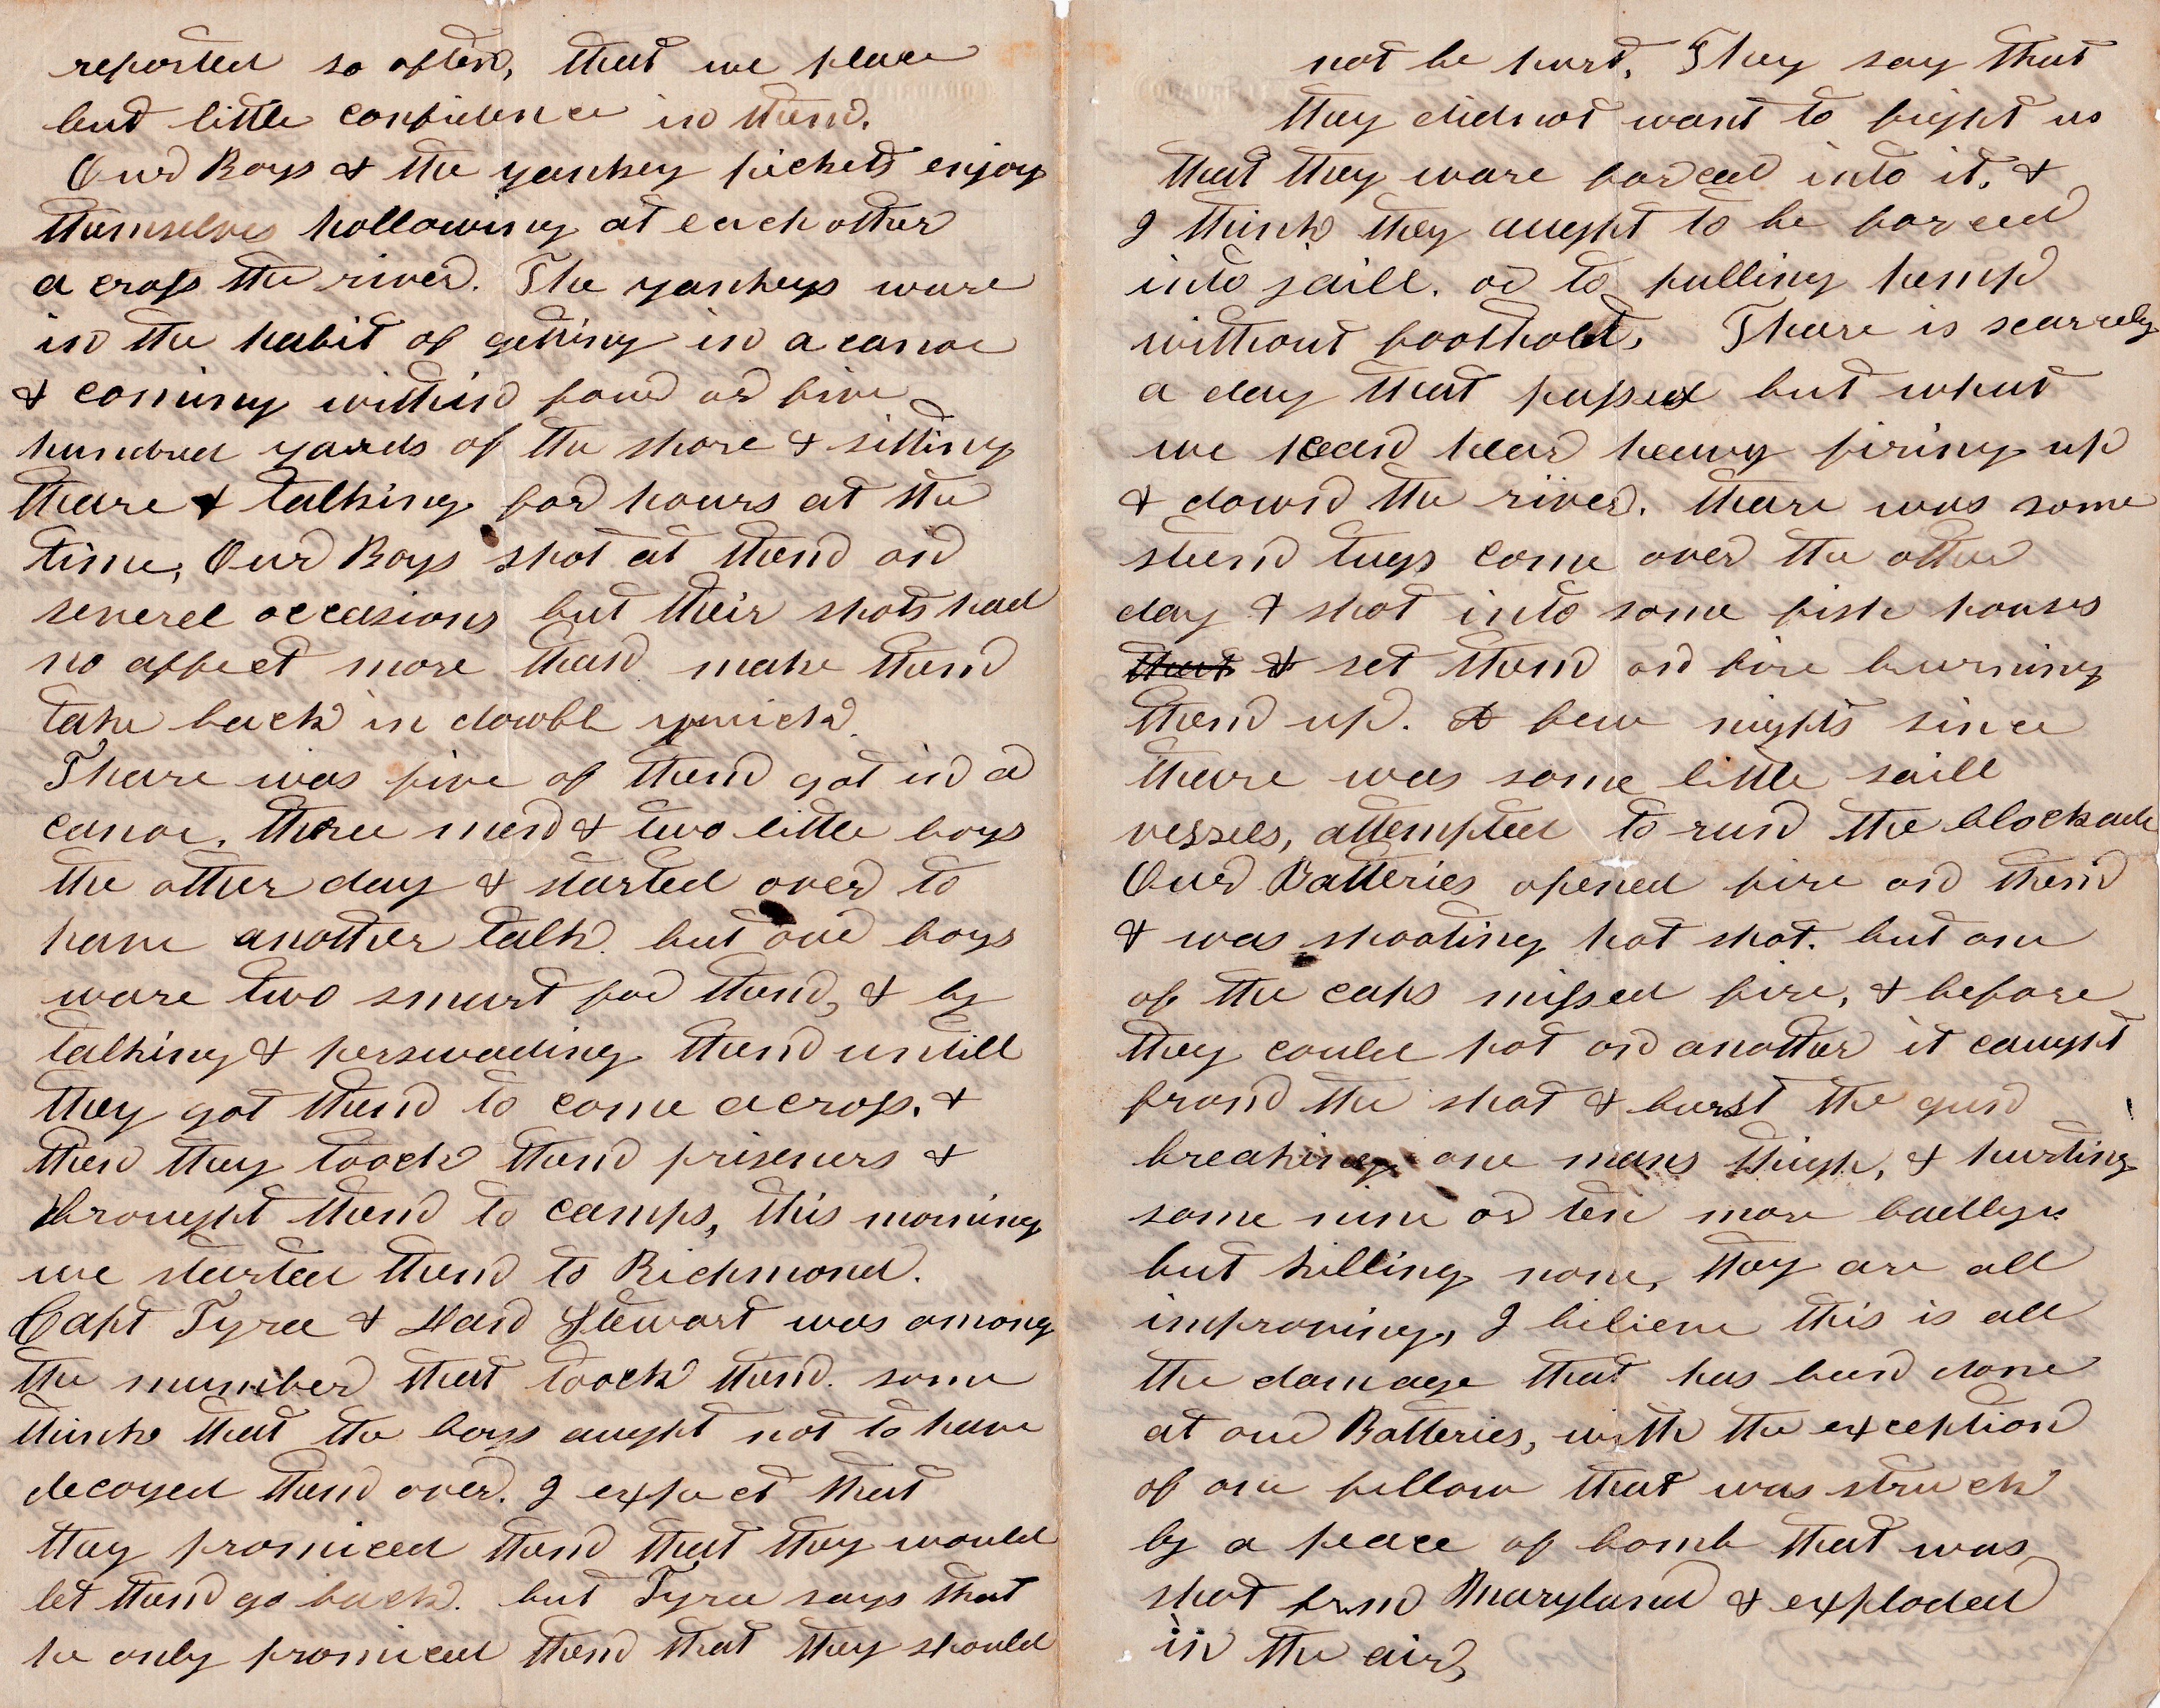 reported so often, that we place
but little confidence in them.
Our Boys & the yankey pickets enjoy
themselves hollowing at each other
a cross the river. The yankeys ware
in the habit of getting in a canoe
& coming within four or five
hundred yards of the shore & sitting
thare & talking for hours at the
time, Our Boys shot at them on
severel occasions but their shots had
no affect more than make them
take back in dowbl quick.
Thare was five of them got in a
canoe, three men & two little boys
the other day & started over to
have another talk. but our boys
ware two smart for them, & by
talking & perswading them untill
they got them to come across. &
then they toock them prisners &
brought them to camps, this morning
we started them to Richmond.
Capt Tyree & Stewart was among
the number that toock them. some
think that the boys aught not to have
decoyed them over. I expect that
they promiced them that they would
let them go back. but Tyree says that
he only promiced them that they should
not be hurt. They say that
they did not want to fight us
that they ware forced into it. &
I think they aught to be forced
into jaill. or to pulling hemp
without foothold. Thare is scarcely
a day that passes but what
we hear heavy firing up
& down the river. thare was some
steem tugs come over the other
day & shot into some fish houses
that & set them on fire burning
them up. A few nights since
thare was some little saill
vessels, attempted to run the blockade
Our Batteries opened fire on them
& was shooting hot shot. but one
of the caps missed fire, & before
they could pot on another it caught
from the shot & burst the gun
breaking one mans thigh, & hurting
some nine or ten more badly
but killing none, they are all
improving, I believe this is all
the damage that has been done
at our Batteries, with the exception
of one fellow that was struck
by a peace of bomb that was
shot from Maryland & exploded
in the air,